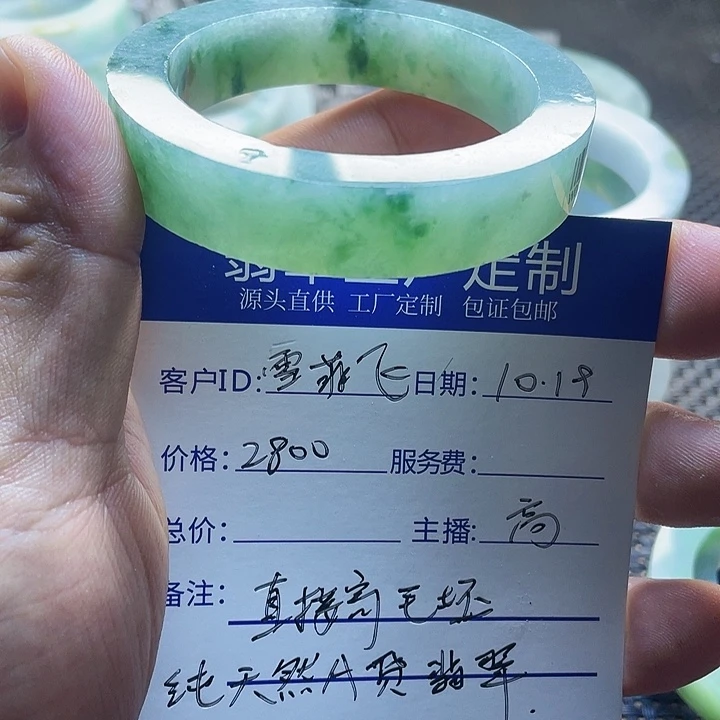 翡翠工厂定制
源头直供 工厂定制 包证包邮
客户ID：雪菲飞 日期：10.19
价格：2800 服务费：
总价： 主播：高
备注：直接高毛坯
纯天然A货翡翠.